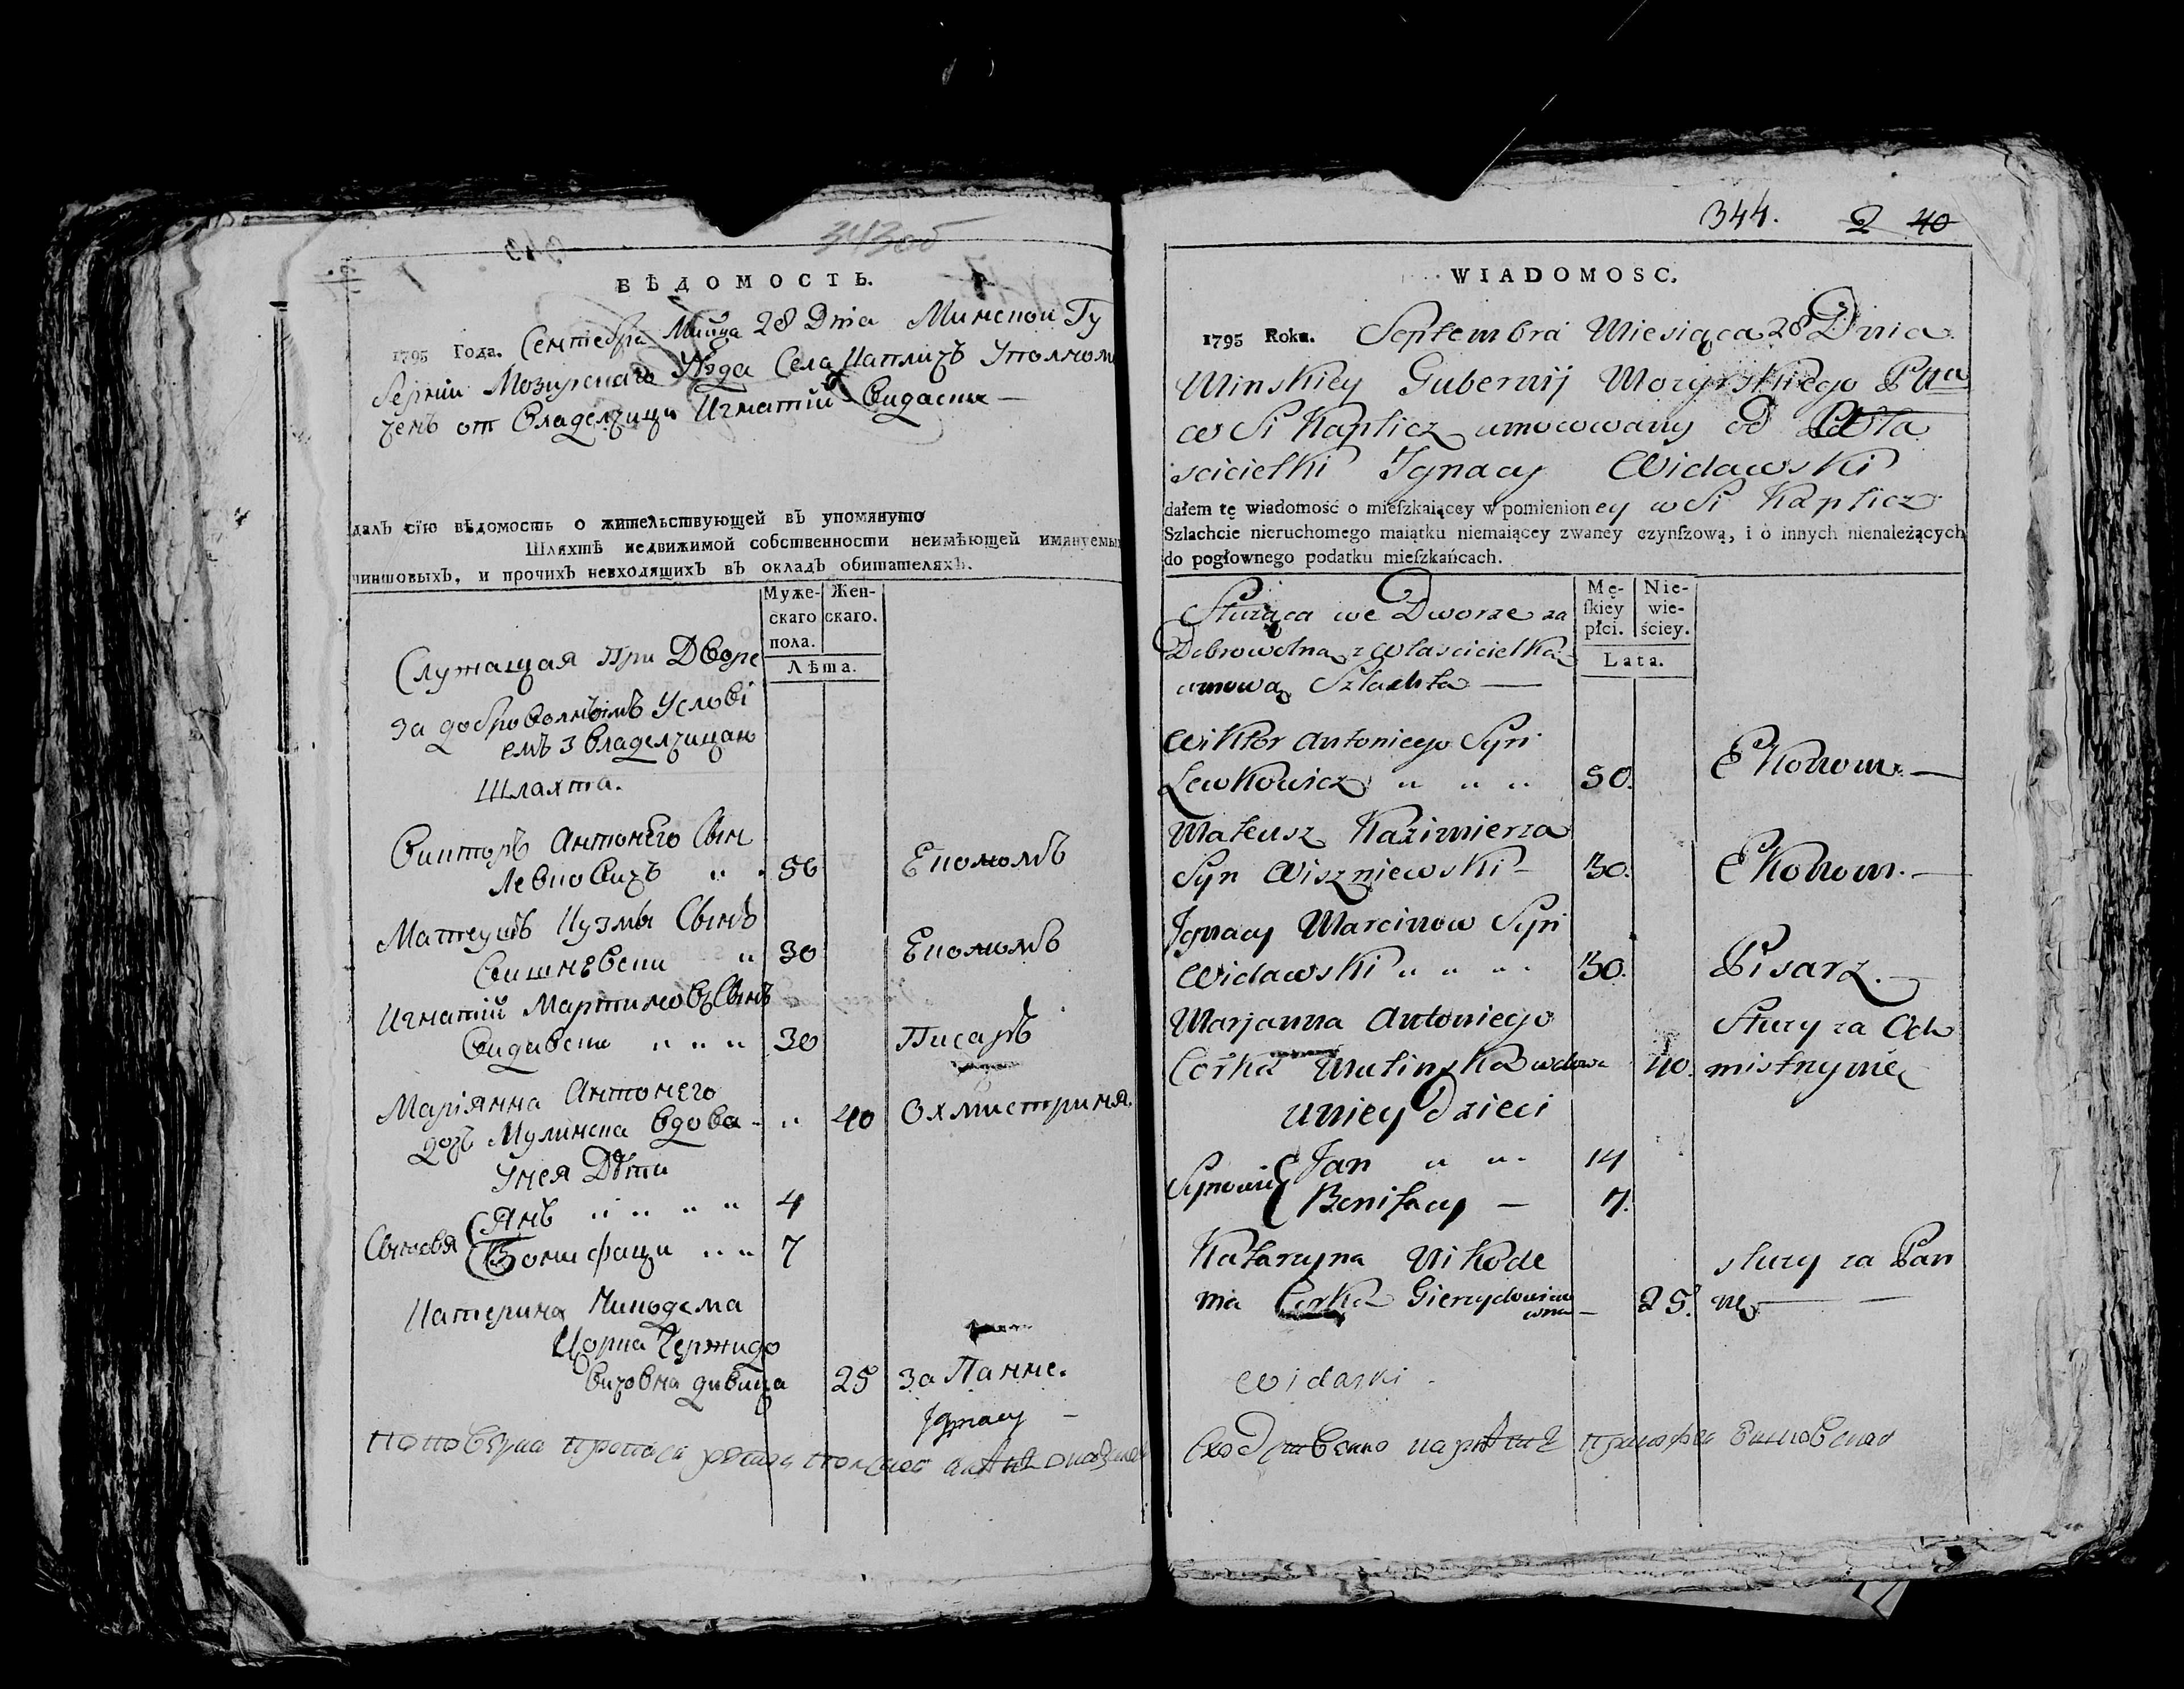 343об
ВѢДОМОСТЬ.
1795 Года. Сентебра Мцца 28 Dnia Минской Гу
берніи Мозирскаго Уѣзда Села Каплизъ Уполном
ченъ от Владелзици Игнатій Видавски
далъ сїю вѣдомость о жительствующей въ упомянуто
Шляхтѣ недвижимой собственности неимѣющей имянуемы
чиншовыхъ, и прочихъ невходящихъ въ окладъ обитателяхъ.
Муже-скаго пола. Жен-скаго.
Лѣта.
Служащая при Дворе
За доброволнымъ Услові
емъ з Владелзицаю
Шляхта.
Викторъ Антонего Сын
Левковизъ 50 Економъ
Матеушъ Кузмы Сынъ
Вишневски 30 Економъ
Игнатій Мартиновъ Сынъ
Видавски 30 Писаръ
Маріянна Антонего
дозъ Мулинска Вдова 40 Охмистриня.
Унея Дѣти
Сыновя Янъ 4
Бонифаци 7
Катерина Никодема
Цорка Гержидо
визовна дивица 25 За Панне.
Ignacy
344. 2 40
WIADOMOSC.
1795 Roku. Septembra Miesiąca 28 Dnia
Minskiey Gubernij Mozyrskiego Pttu
w Si Kaplicz umocowany od Wła
scicielki Ignacy Widawski
dałem tę wiadomość o mieſzkaiącey w pomienioney w Si Kaplicz
Szlachcie nieruchomego maiątku niemaiącey zwaney czynſzową, i o innych nienależących
do pogłownego podatku mieſzkańcach.
Mę-ſkiey płci. Nie-wie-ściey.
Lata.
Służąca we Dworze za
Dobrowolną z właścicielką
umową Szlachta
Wiktor Antoniego Syn
Lewkowicz 50. Ekonom.
Mateusz Kazimierza
Syn Wiszniewski 30. Ekonom.
Ignacy Marcinow Syn
Widawski 30. Pisarz.
Marjanna Antoniego Służy za Och
Corka Mulinska wdowa 40. mistrynię
u niey Dzieci
Synowie Jan 14
Bonifacy 7.
Katarzyna Nikode służy za Pan
ma Corka Gierzydowiczo
wna 25. nę
Widaski